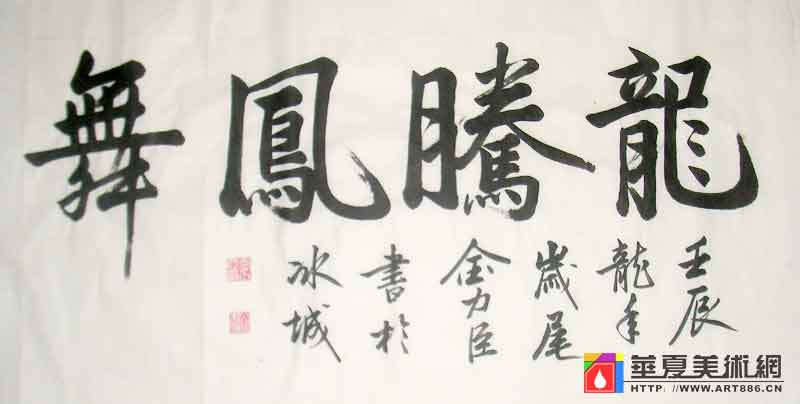 龍騰鳳舞
壬辰
龍年
歲尾
金力臣
書於
冰城
華夏美術網
HTTP://WWW.ART886.CN